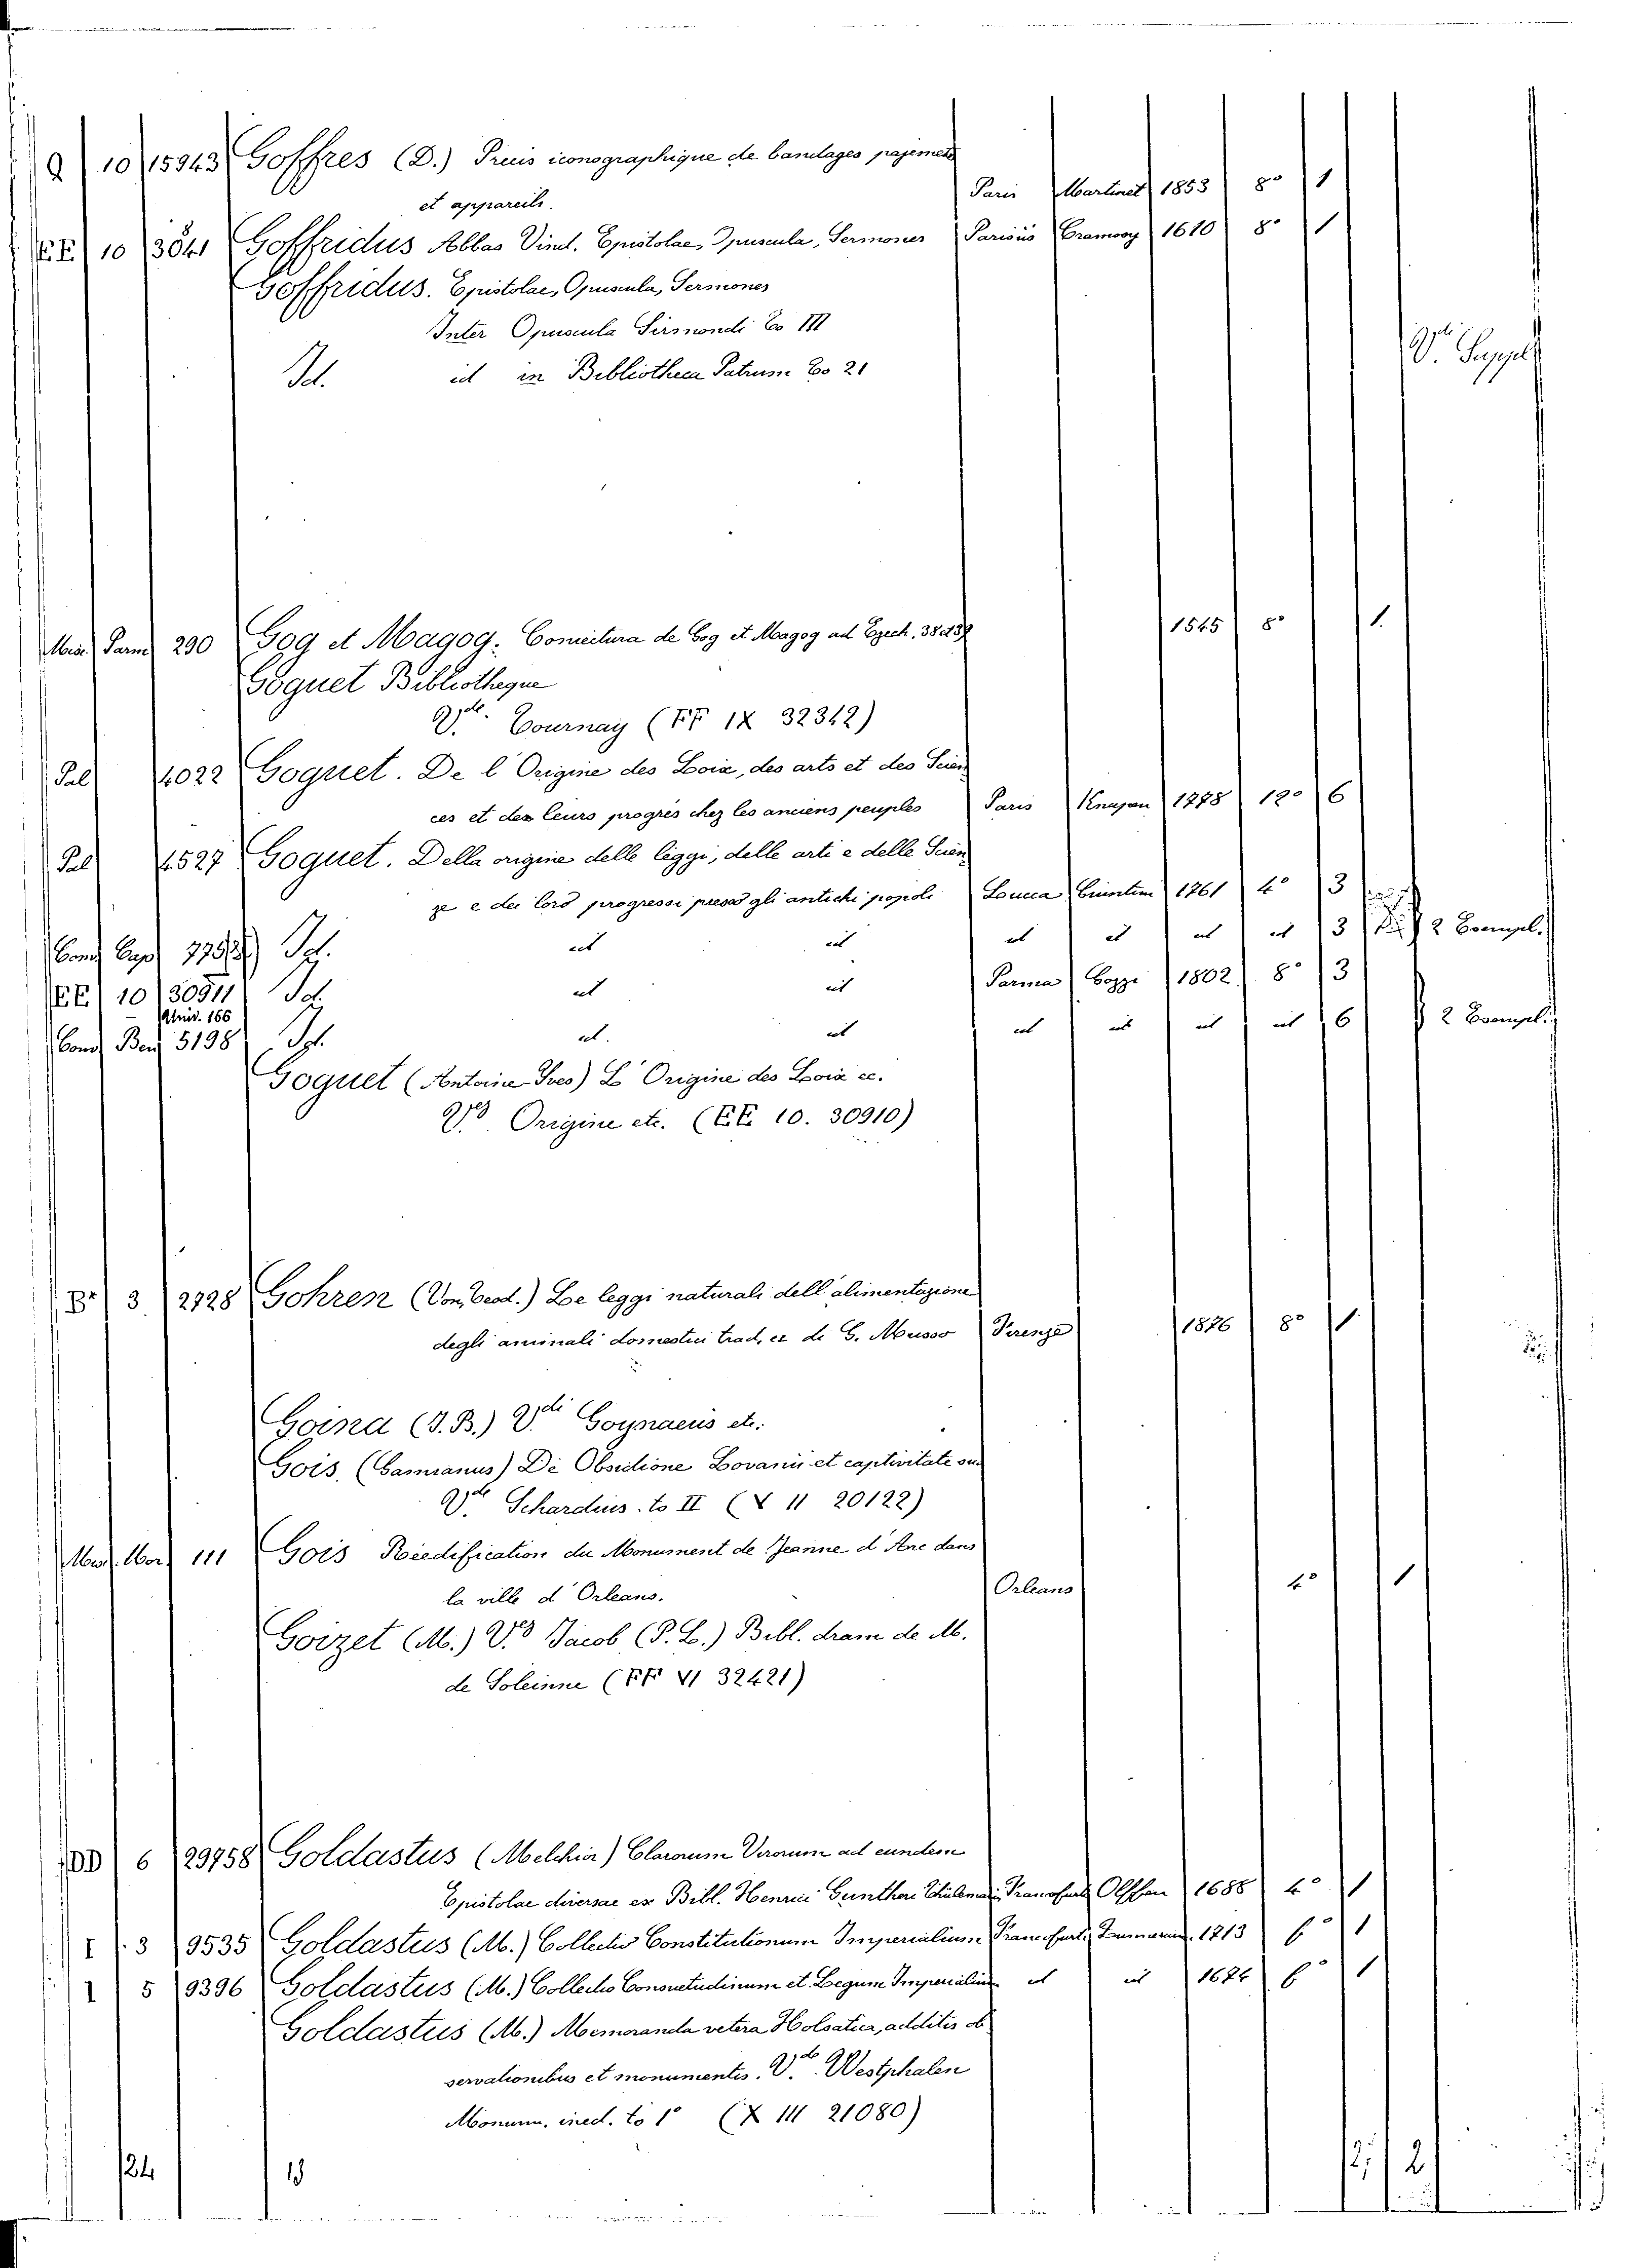 Q 10 15943 Goffres (D.) Precis iconographique de bandages pajements
et appareils. Paris Martinet 1853 8° 1
EE 10 3041 Goffridus Abbas Vind. Epistolae, Opuscula, Sermones Parisiis Cramooy 1610 8° 1
Goffridus. Epistolae, Opuscula, Sermones
Inter Opuscula Sirmondi to III V. Suppl
Id. id in Bibliotheca Patrum to 21
Misc. Parm 290 Gog et Magog. Coniectura de Gog et Magog ad Ezech. 38 e 39 1545 8° 1.
Goguet Bibliotheque
V. de. Tournay (FF IX 32342)
Pal 14022 Goguet. De l Origine des Loix, des arts et des Scien
ces et des leurs progrès chez les anciens peuples Paris Knapen 1778 12° 6
Pal 4527 Goguet. Della origine delle leggi, delle arti e delle Scien
ze e dei loro progressi presso gli antichi popoli Lucca Giuntini 1761 4° 3
Cond Cap Id. id id id id id id 3 2 Esempl.
EE 10 30911 Id. id id Parma Gozzi 1802 8° 3
Univ. 166
Cond Ben 5198 Id. id. id id id id id 6 2 Esempl.
Goguet (Antoine Yves) L' Origine des Loix ec.
V.° Origine etc. (EE 10. 30910)
Br 3 2728 Gohren (Von, Teod.) Le leggi naturali dell'alimentazione
degli animali domestici trad. ec di G. Musso Firenze 1876 8° 1
Goina (J. B.) V. di Goynaeus etc.
Gois, (Damianus) De Obsidione Lovanii et captivitate sua
V. de Schardius. to II (V 11 20122)
Mor 111 Gois Riedification du Monument de Jeanne d' Arc dans
la ville d' Orleans. Orleans 4° 1
Goizet (M.) V.° Jacob (P. L.) Bibl. dram de M.
de Soleinne (FF VI 32421)
DD 6 29758 Goldastus (Melchior) Clarorum Virorum ad eundem
Epistolae diversae ex Bibl. Henrici Gunther 1688 4° 1
I 3 9535 Goldastus (M.) Collectio Constitutionum Imperialium Francofurti 1713 f° 1
I 5 9396 Goldastus (M.) Collectio Consuetudinum et Legum Imperialium id id 1674 f° 1
Goldastus (M.) Memoranda vetera Holsatica, additis ob
servationibus et monumentis. V. de. Westphalen
Monum. ined. to 1° (X III 21080)
124 13 2